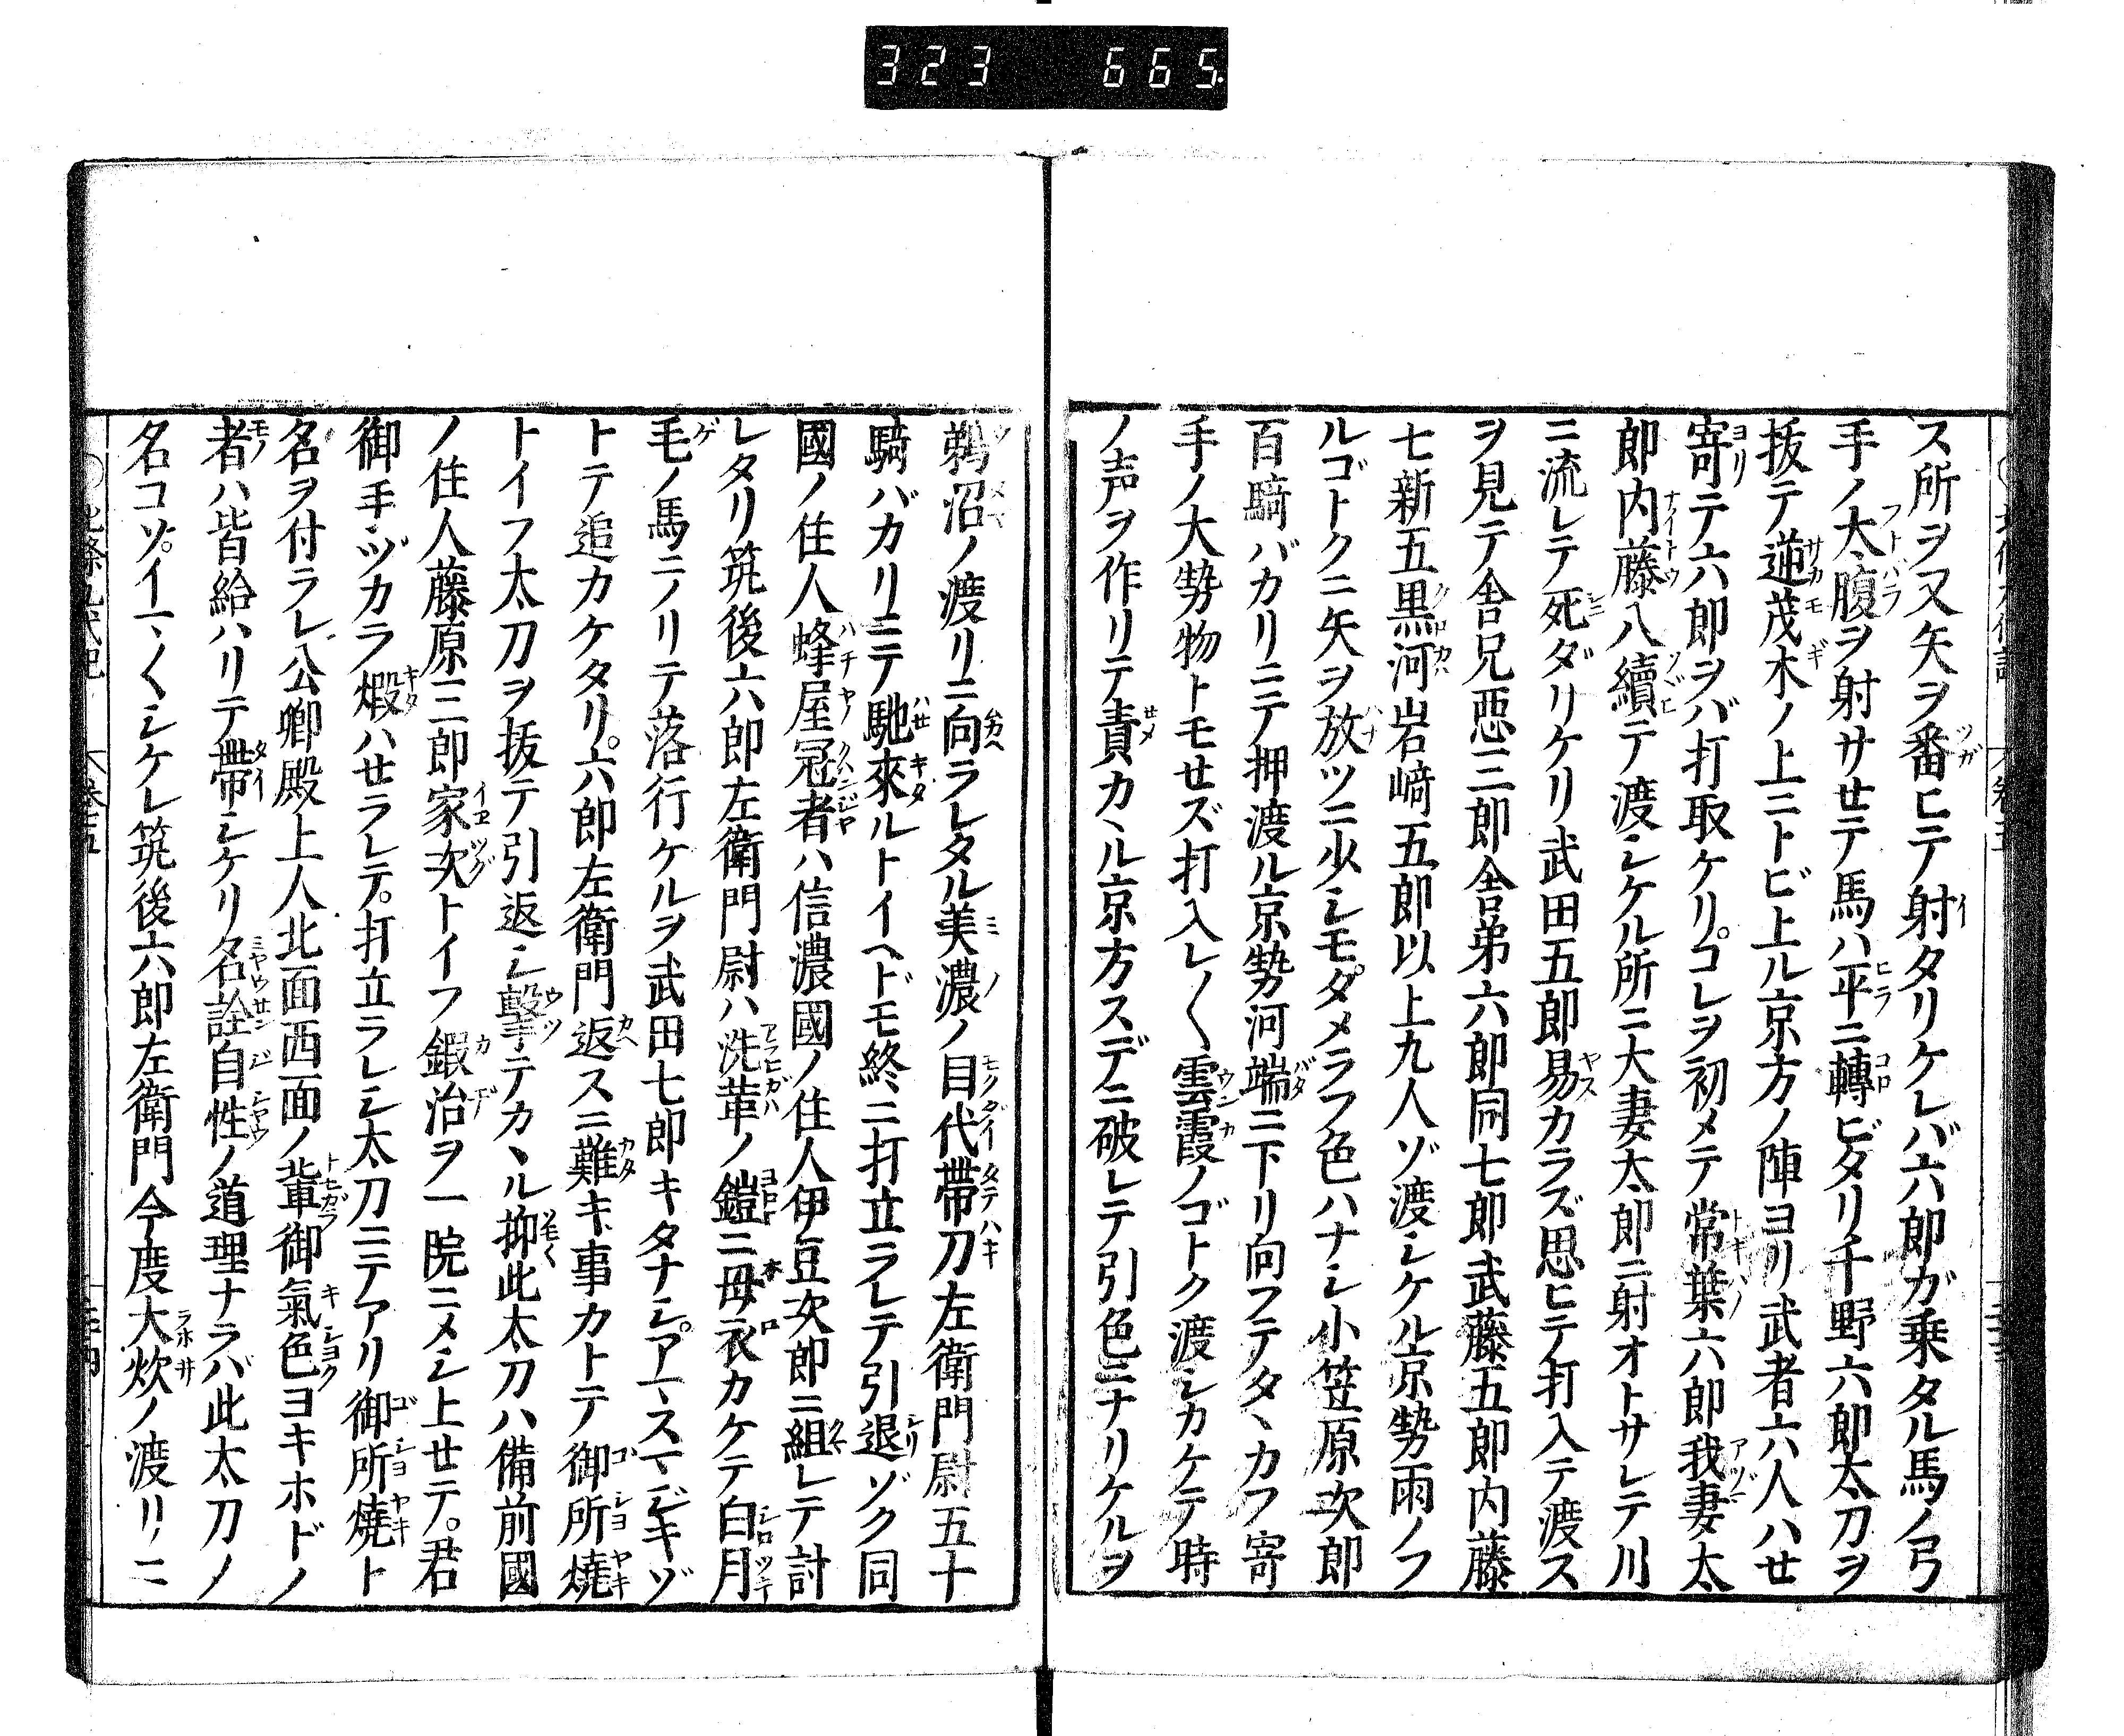 323 665.
ス所ヲ又矢ヲ番ヒテ射タリケレバ六郎ガ乗タル馬ノ弓
手ノ太腹ヲ射サセテ馬ハ平ニ轉ビタリ千野六郎太刀ヲ
抜テ逆茂木ノ上ニトビ上ル京方ノ陣ヨリ武者六人ハセ
寄テ六郎ヲバ打取ケリ。コレヲ初メテ常葉六郎我妻太
郎内藤八續テ渡シケル所ニ大妻太郎ニ射オトサレテ川
ニ流レテ死ダリケリ武田五郎易カラズ思ヒテ打入テ渡ス
ヲ見テ舎兄悪三郎舎弟六郎同七郎武藤五郎内藤
七新五黒河岩﨑五郎以上九人ゾ渡シケル京勢雨ノフ
ルゴトクニ矢ヲ放ツニ少シモタメラフ色ハナシ小笠原次郎
百騎バカリニテ押渡ル京勢河端ニ下リ向フテタヽカフ寄
手ノ大勢物トモセズ打入レ〱雲霞ノゴトク渡シカケテ時
ノ声ヲ作リテ責カヽル京方スデニ破レテ引色ニナリケルヲ
鵜沼ノ渡リニ向ラレタル美濃ノ目代帯刀左衛門尉五十
騎バカリニテ馳來ルトイヘドモ終ニ打立ラレテ引退ゾク同
國ノ住人蜂屋冠者ハ信濃國ノ住人伊豆次郎ニ組レテ討
レタリ筑後六郎左衛門尉ハ洗革ノ鎧ニ母衣カケテ白月
毛ノ馬ニノリテ落行ケルヲ武田七郎キタナシ。アマスマジキゾ
トテ追カケタリ。六郎左衛門返スニ難キ事カトテ御所焼
トイフ太刀ヲ抜テ引返シ撃テカヽル抑此太刀ハ備前國
ノ住人藤原三郎家次トイフ鍛治ヲ一院ニメシ上セテ。君
御手ヅカラ煅ハセラレテ。打立ラレシ太刀ニテアリ御所燒ト
名ヲ付ラレ公卿殿上人北面西面ノ輩御氣色ヨキホドノ
者ハ皆給ハリテ帯シケリ名詮自性ノ道理ナラバ此太刀ノ
名コソ。イマ〱シケレ筑後六郎左衛門今度大炊ノ渡リニ